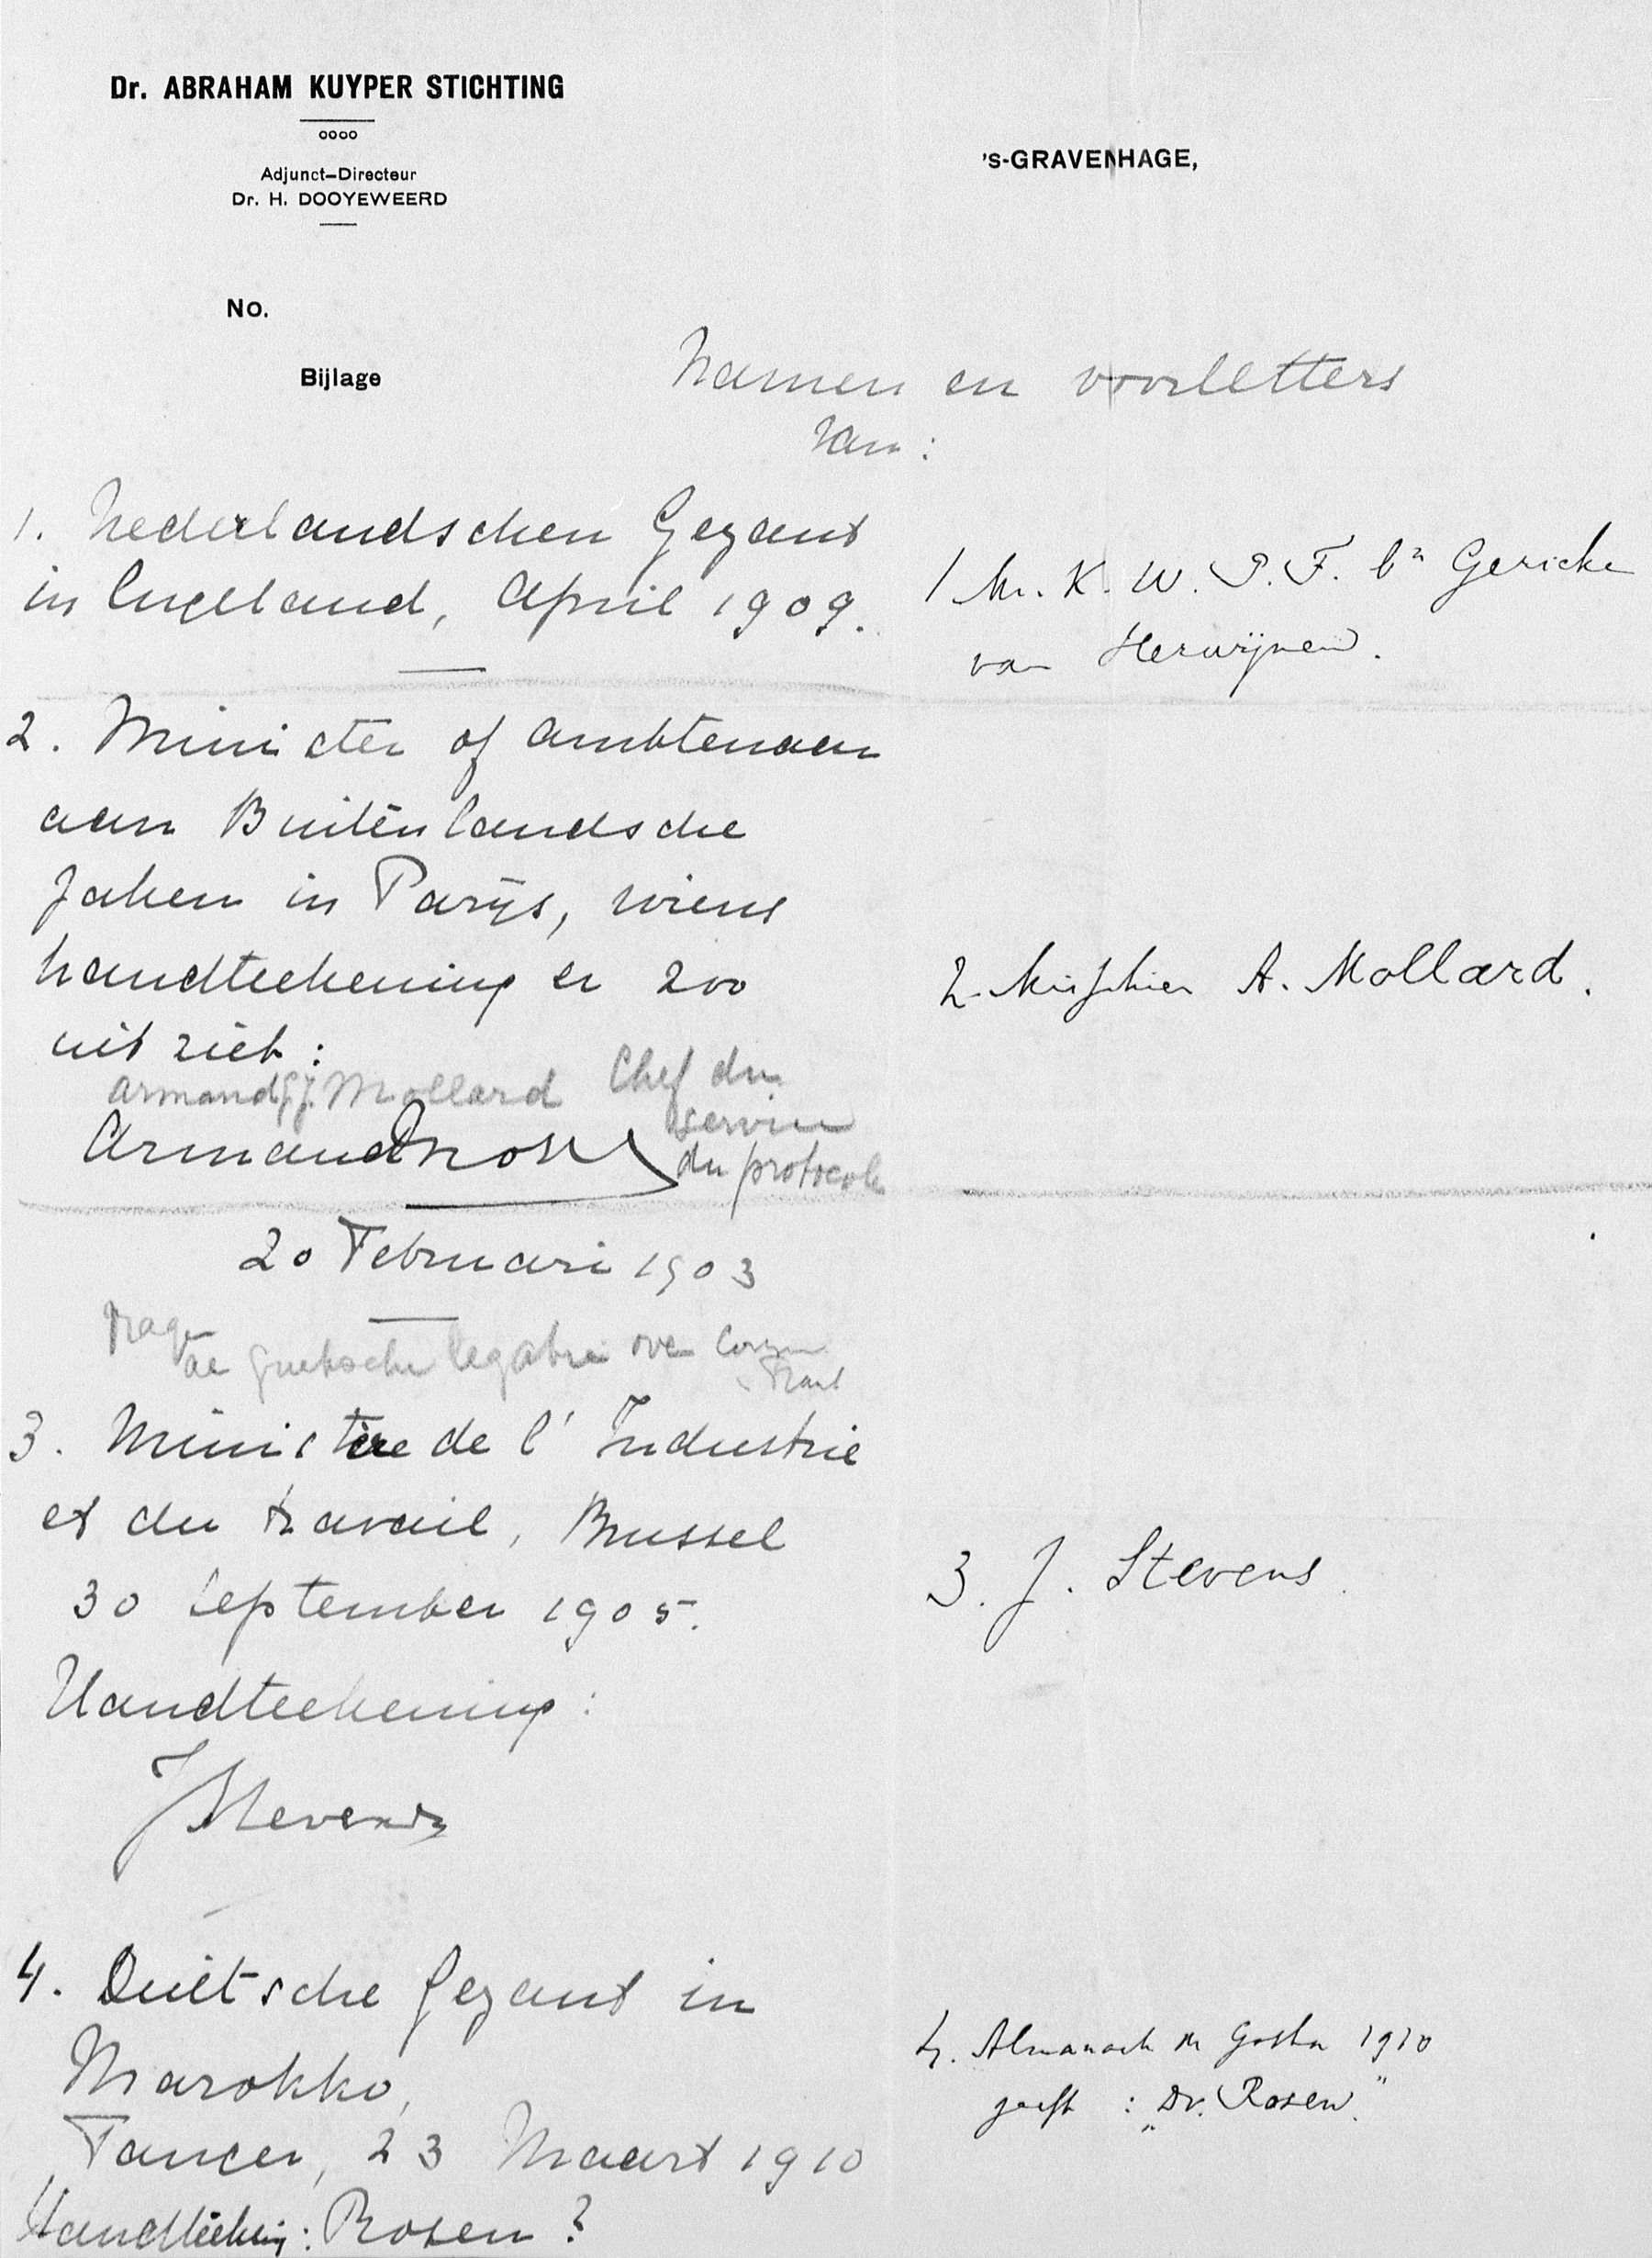 Dr. ABRAHAM KUYPER STICHTING
oooo
Adjunct-Directeur
Dr. H. DOOYEWEERD
's-GRAVENHAGE,
No.
Bijlage
Namen en voorletters
van:
1. Nederlandschen Gezant
in Engeland, April 1909.
1 Mr. K. W. P. F. bn Gericke
van Herwijnen.
2. Minister of ambtenaar
aan Buitenlandsche
Zaken in Parijs, wiens
handteekening er zoo
uit ziet:
2. A. Mollard.
Armand Mollard Chef du
service
du protocole
Armand
20 Februari 1903
de over
3. Ministère de l'Industrie
et du travail, Brussel
30 September 1905.
Handteekening:
3. J. Stevens.
J Stevens
4. Duitsche Gezant in
Marokko,
Tanger, 23 Maart 1910
Handteekening: Rosen?
4. Almanach de Gotha 1910
geeft: „Dr. Rosen."